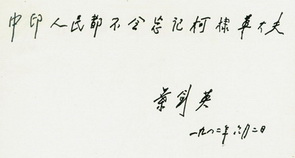 中印人民都不会忘记柯棣华大夫
叶剑英
一九八二年六月二日